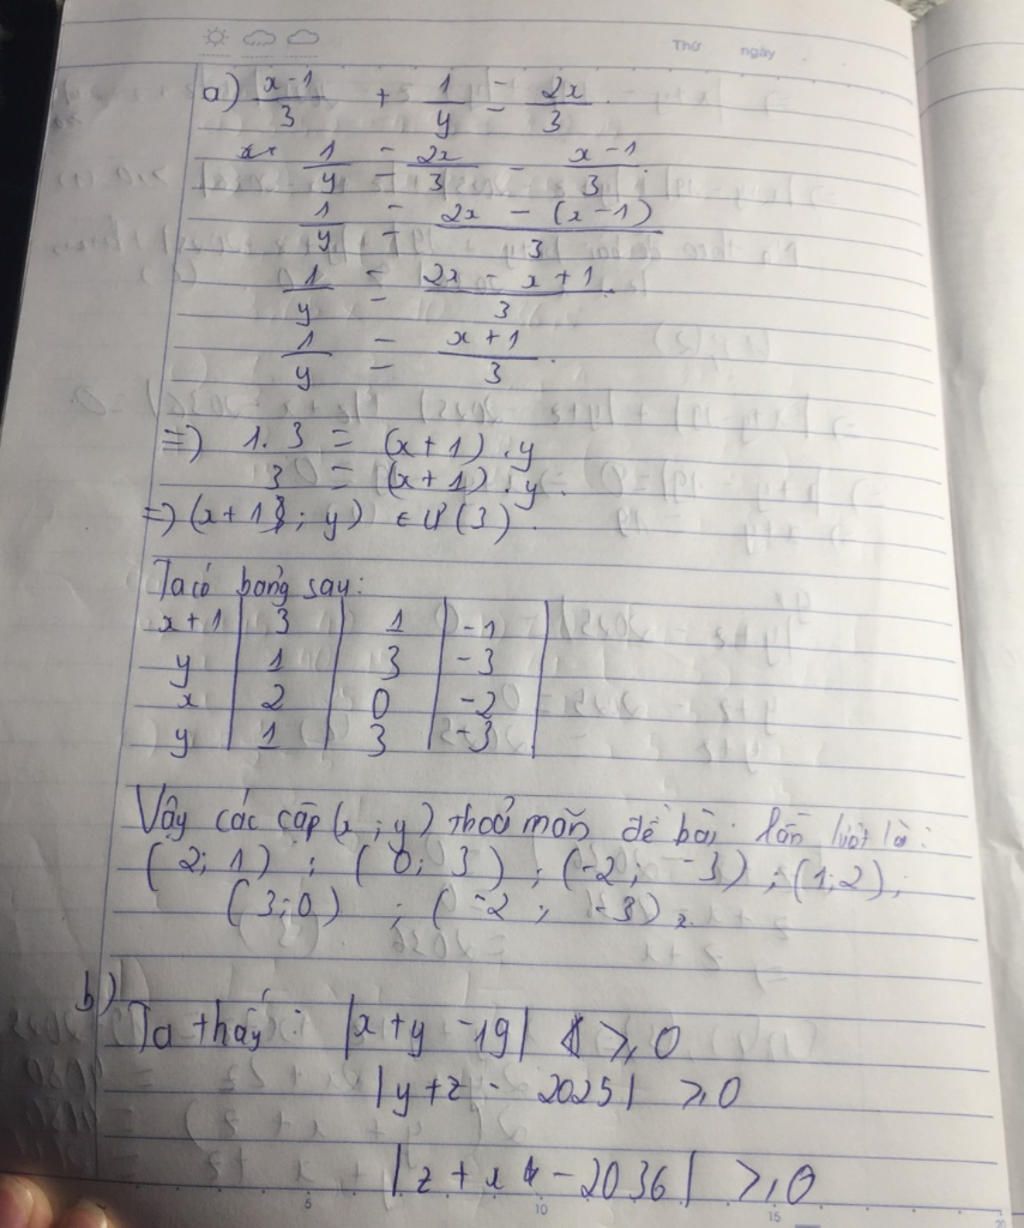 Thứ ngày
a) x-1/3 + 1/y = 2x/3
1/y = 2x/3 - x-1/3
1/y = 2x - (x-1)/3
1/y = 2x - x+1/3
1/y = x+1/3
=) 1.3 = (x+1).y
3 = (x+1).y
=) (x+1; y) ∈ Ư(3)
Ta có bảng say:
x+1 | 3 | 1 | -1
y | 1 | 3 | -3
x | 2 | 0 | -2
y | 1 | 3 | -3
Vậy các cặp (x; y) thoả mãn đề bài lần lượt là:
(2; 1); (0; 3); (-2; -3); (1; 2);
(3; 0); (-2; -3).
b)
Ta thấy: |x+y-19| ≥ 0
|y+z - 2025| ≥ 0
|z+x - 2036| ≥ 0
5 10 15